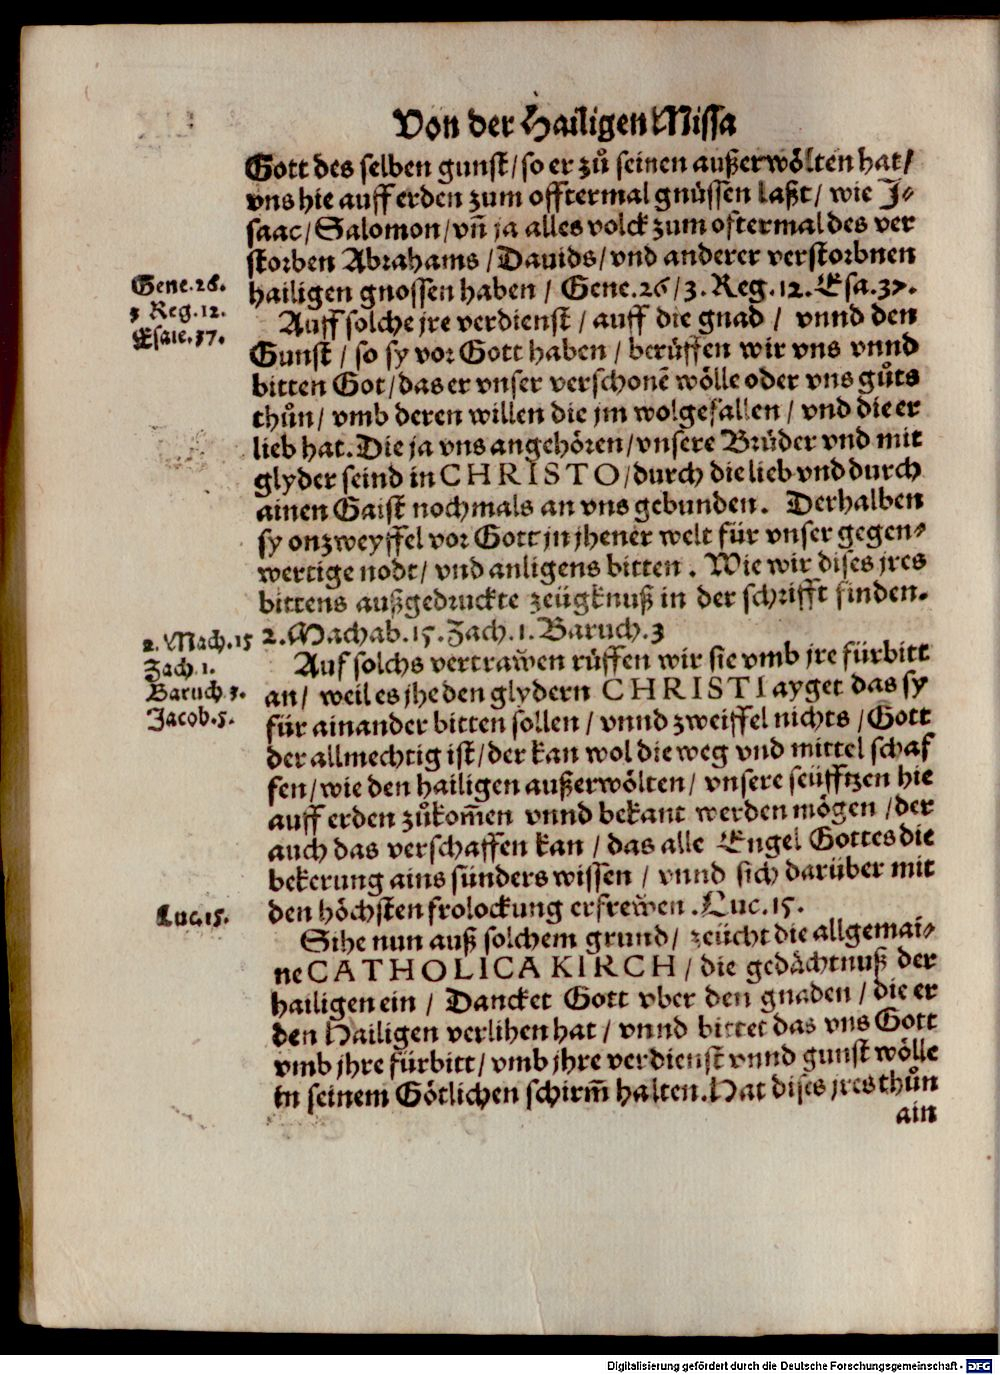 Von der Hailigen Missa
Gott des selben gunst/ so er zů seinen außerwölten hat/
vns hie auff erden zum offtermal gnüssen laßt/ wie J⸗
saac/ Salomon/ vñ ja alles volck zum oftermal des ver
storben Abrahams/ Dauids/ vnd anderer verstorbnen
hailigen gnossen haben/ Gene.26/3. Reg.12. Esa.37.
Gene.26.
3 Reg.12.
Esaie.37.
Auff solche jre verdienst/ auff die gnad/ vnnd den
Gunst/ so sy vor Gott haben/ berüffen wir vns vnnd
bitten Got/ das er vnser verschonē wölle oder vns gůts
thůn/ vmb deren willen die jm wolgefallen/ vnd die er
lieb hat. Die ja vns angehören/ vnsere Brüder vnd mit
glyder seind in CHRISTO/ durch die lieb vnd durch
ainen Gaist nochmals an vns gebunden. Derhalben
sy onzweyffel vor Gott jn jhener welt für vnser gegen⸗
wertige nodt/ vnd anligens bitten. Wie wir dises jres
bittens außgedruckte zeügknuß in der schrifft finden.
2. Machab.15. Zach.1. Baruch.3
2. Mach.15
Zach.1.
Baruch.3.
Jacob.5.
Auf solchs vertrawen rüffen wir sie vmb jre fürbitt
an/ weil es jhe den glydern CHRISTI ayget das sy
für ainander bitten sollen/ vnnd zweiffel nichts/ Gott
der allmechtig ist/ der kan wol die weg vnd mittel schaf
fen/ wie den hailigen außerwölten/ vnsere seüfftzen hie
auff erden zůkom̄en vnnd bekant werden mögen/ der
auch das verschaffen kan/ das alle Engel Gottes die
bekerung ains sünders wissen/ vnnd sich darüber mit
den höchsten frolockung erfrewen. Luc.15.
Luc.15.
Sihe nun auß solchem grund/ zeücht die allgemai⸗
ne CATHOLICA KIRCH/ die gedächtnuß der
hailigen ein/ Dancket Gott vber den gnaden/ die er
den Hailigen verlihen hat/ vnnd bittet das vns Gott
vmb jhre fürbitt/ vmb jhre verdienst vnnd gunst wölle
in seinem Götlichen schirm̄ halten. Hat dises jres thůn
ain
Digitalisierung gefördert durch die Deutsche Forschungsgemeinschaft - DFG